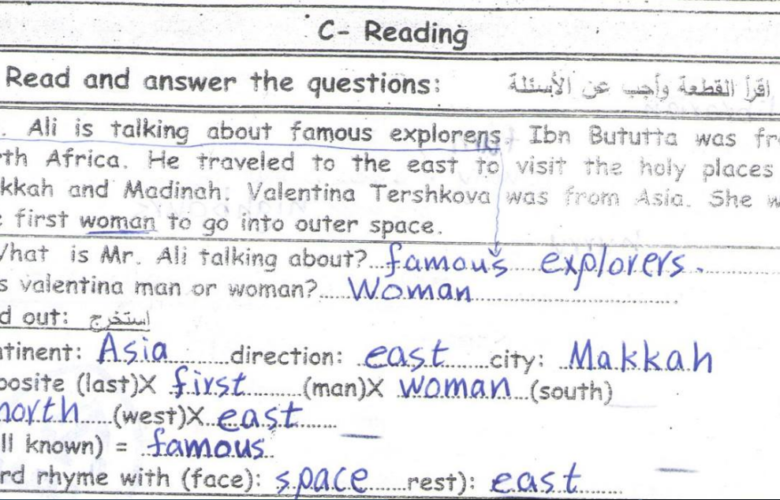 C- Reading
Read and answer the questions: اقرأ القطعة وأجب عن الأسئلة
. Ali is talking about famous explorens. Ibn Bututta was fr
th Africa. He traveled to the east to visit the holy places
kkah and Madinah. Valentina Tershkova was from Asia. She w
first woman to go into outer space.
What is Mr. Ali talking about? famous explorers.
s valentina man or woman? Woman
d out: استخرج
tinent: Asia direction: east city: Makkah
posite (last)X first (man)X woman (south)
north (west)X east
ll known) = famous
rd rhyme with (face): space rest): east